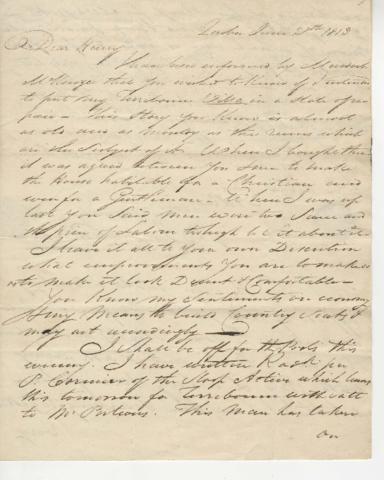 June 27th 1813
Dear Henry
I have been informed by
McKenzie that you wished to know if I intend
to put my Terrebonne Villa in a State of re
pair - This Story you know is almost
as old and as as the ruins which
are the Subject of it When I bought the
it was agreed between you & me to make
the House habitable for a Christian and
even for a Gentleman - When I was up
last You Said Men were too and
the price of Labour too high let it about it
I leave it all to your own Discretion
what improvements You are to make
make it look Decent & Comfortable -
You Know my Sentiments on economy
& my Means to build Country Seats &
may act accordingly -
I Shall be off for the this
evening. I have written
P. Cormier of the Sloop Active which leaves
this tomorrow for Terrebonne with salt
to Mr This Man has taken
on